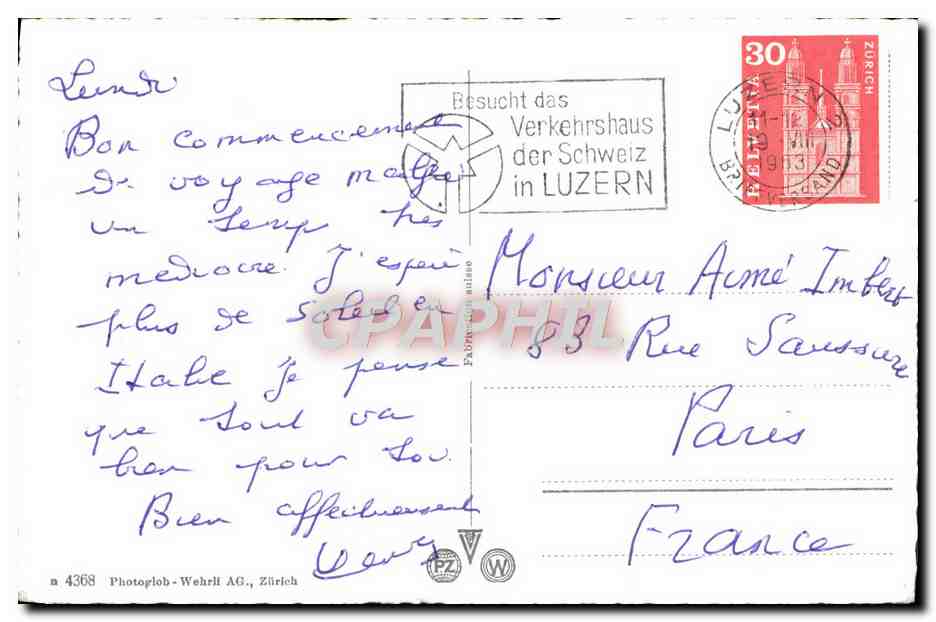 Lundi
Bon commencement
de voyage malgré
un temps très
mediocre. J'espère
plus de soleil en
Italie je pense
que tout va
bien pour toi.
Bien affectueusement
Besucht das
Verkehrshaus
der Schweiz
in LUZERN
30
HELVETIA
ZÜRICH
LUZERN 2
11-12
1963
BRIEFVERSAND
Monsieur Aimé Imbert
83 Rue Saussure
Paris
France
Fabrication suisse
CPAPHIL
PZ W
n 4368 Photoglob-Wehrli AG., Zürich